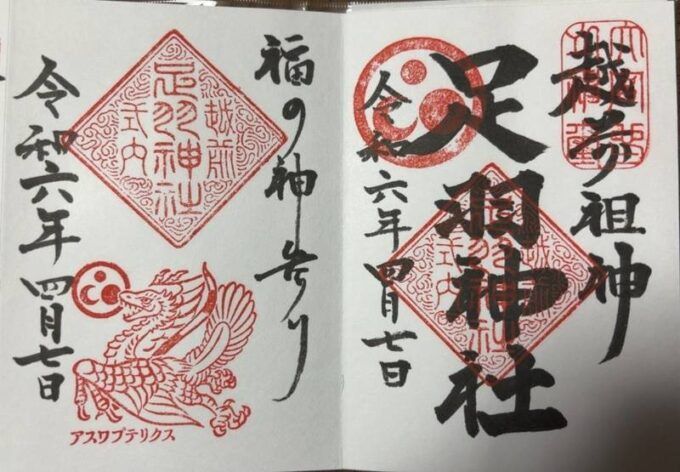 越前祖神
足羽神社
令和六年四月七日
越前
足羽神社
式内
福の神参り
越前
足羽神社
式内
令和六年四月七日
アスワプテリクス